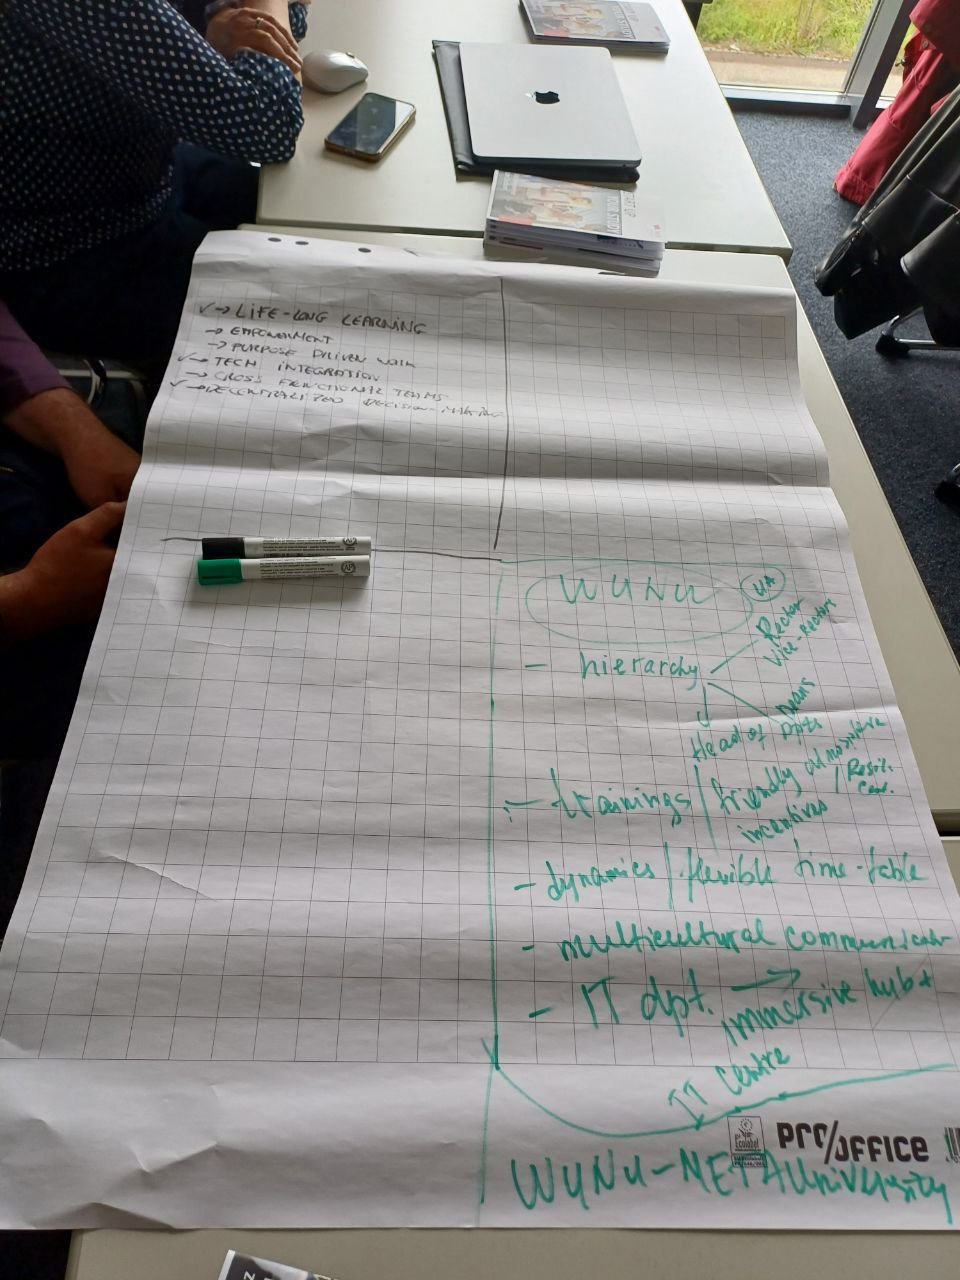 ✓→ LIFE-LONG LEARNING
→ EMPOWERMENT
→ PURPOSE DRIVEN WORK
✓→ TECH INTEGRATION
→ CROSS FUNCTIONAL TEAMS
✓→ DECENTRALIZED DECISION-MAKING
WUNU UA
- hierarchy
Rector
Vice-Rectors
Deans
Head of Dpts
- trainings / friendly atmosphere /
incentives
- dynamics / flexible time-table
- multicultural communicat
- IT dpt. → immersive hub +
IT Centre
Ecolabel
PRO/OFFICE
WUNU-METAUniversity